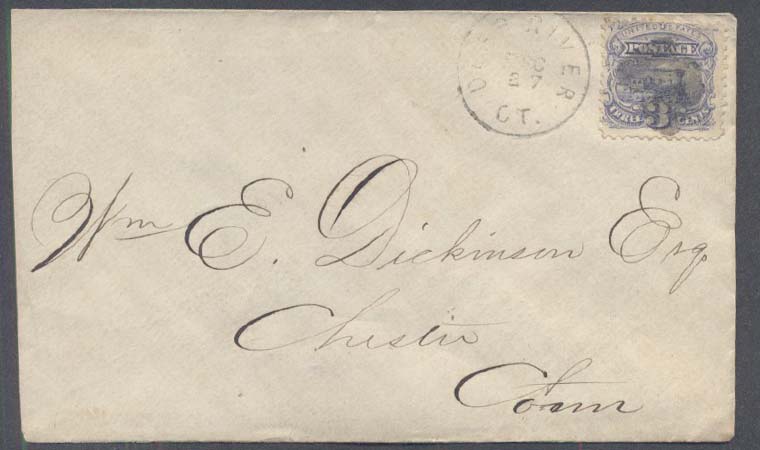 DEEP RIVER
DEC
27
CT.
UNITED STATES
POSTAGE
THREE 3 CENTS
Wm E. Dickinson Esq.
Chester
Conn